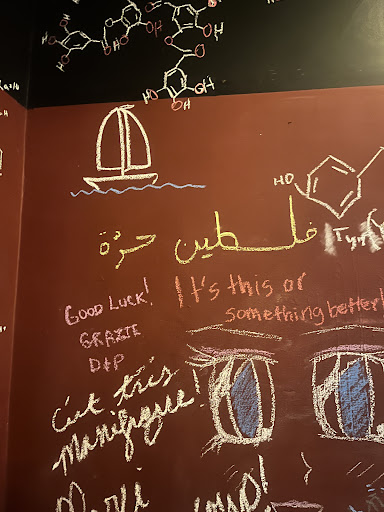 HO
OH
HO
OH
HO
OH
OH
HO
فلسطين حرّة
Tyr
GOOD LUCK!
GRAZIE
D+P
It's this or
something better!
C'est très
Manifique!